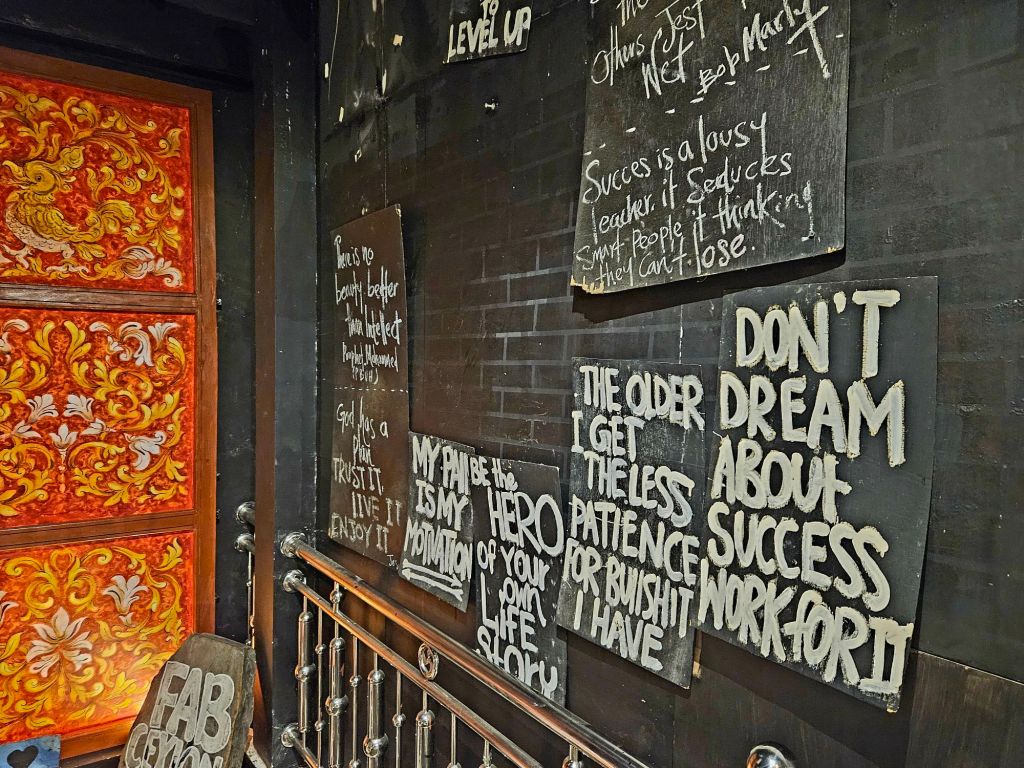 TO
LEVEL UP
the
Others Jest
Wet
Bob Marly
Succes is a lousy
teacher. it Seduces
Smart People it thinking
they Can't lose.
There is no
beauty better
than Intellect
Prophet Mohammed
(PBUH)
God has a
Plan
TRUST IT
LIVE IT
ENJOY IT
MY PAI
IS MY
MOTIVATION
BE the
HERO
OF YOUR
OWN
LIFE
Story
THE OLDER
I GET
THE LESS
PATIENCE
FOR BULLSHIT
I HAVE
DON'T
DREAM
ABOUt
SUCCESS
WORK fOR IT
FAB
CEYLON